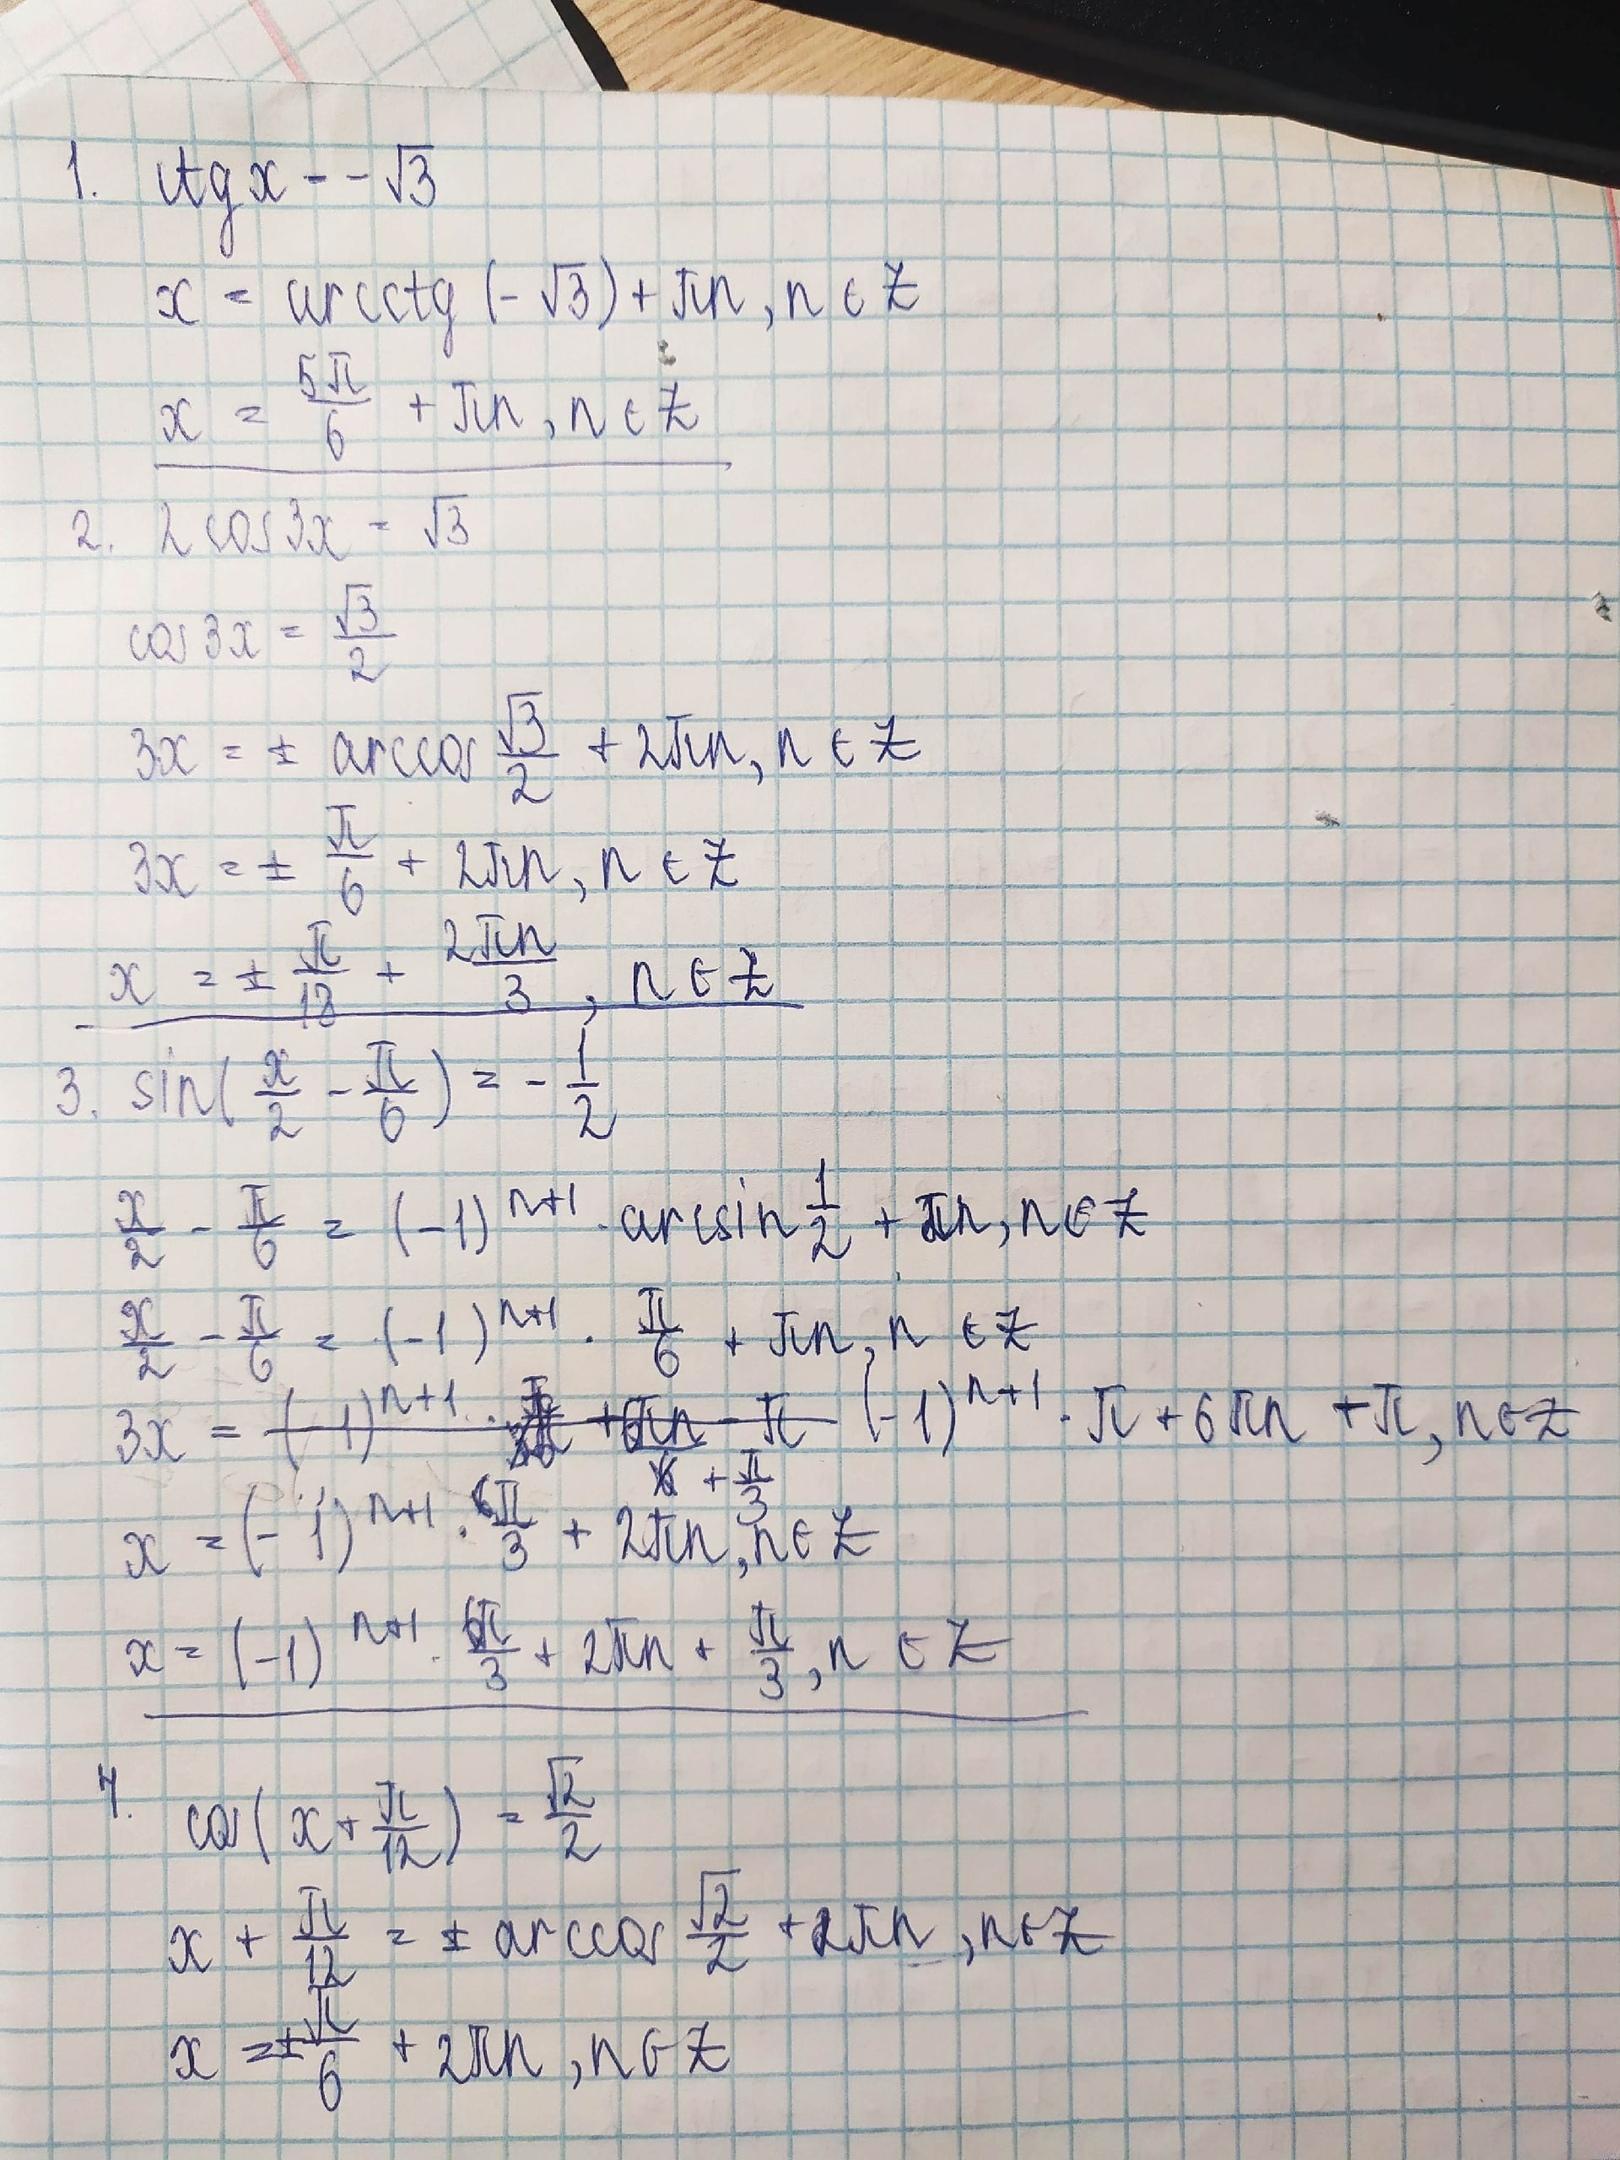 1. ctg x = -√3
x = arcctg (-√3) + πn, n ∈ Z
x = 5π/6 + πn, n ∈ Z
2. 2 cos 3x = √3
cos 3x = √3/2
3x = ± arccos √3/2 + 2πn, n ∈ Z
3x = ± π/6 + 2πn, n ∈ Z
x = ± π/18 + 2πn/3, n ∈ Z
3. sin(x/2 - π/6) = -1/2
x/2 - π/6 = (-1)^n+1 · arcsin 1/2 + πn, n ∈ Z
x/2 - π/6 = (-1)^n+1 · π/6 + πn, n ∈ Z
3x = (-1)^n+1 · π + 6πn + π, n ∈ Z
x = (-1)^n+1 · π/3 + 2πn + π/3, n ∈ Z
x = (-1)^n+1 · π/3 + 2πn + π/3, n ∈ Z
4. cos(x + π/12) = √2/2
x + π/12 = ± arccos √2/2 + 2πn, n ∈ Z
x = ± π/6 + 2πn, n ∈ Z